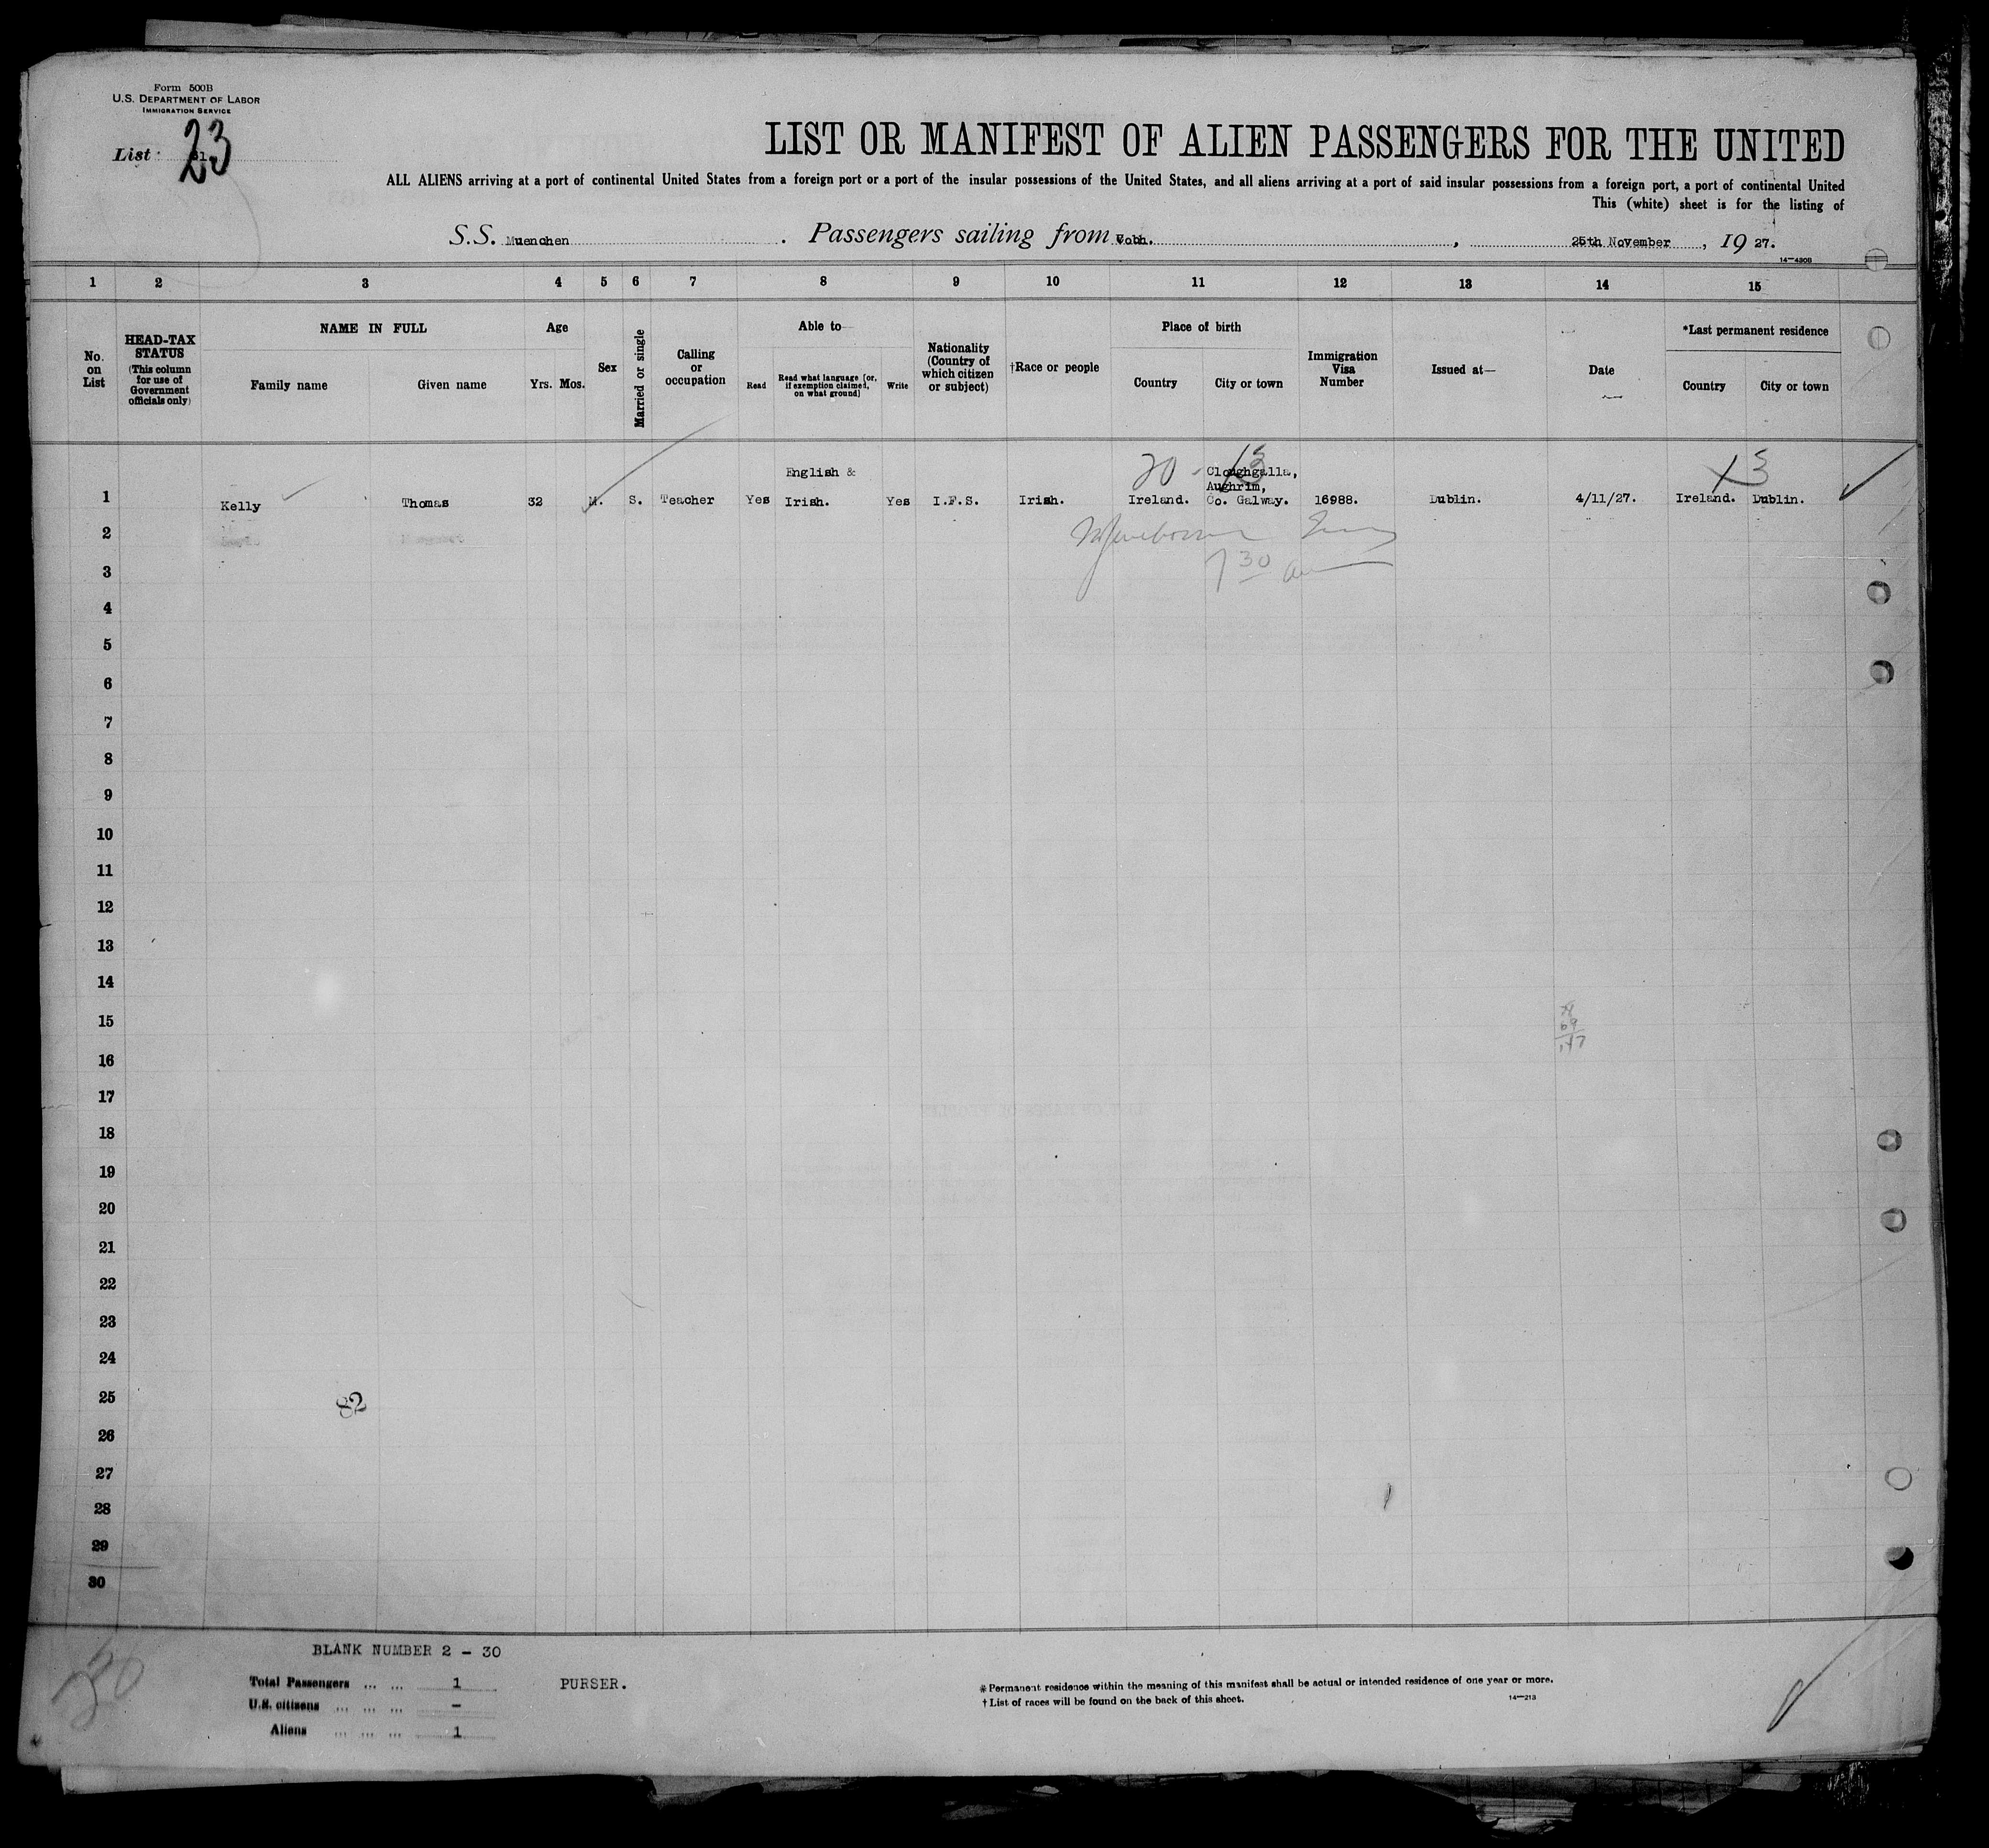 Form 500B
U.S. DEPARTMENT OF LABOR
IMMIGRATION SERVICE
List 23
LIST OR MANIFEST OF ALIEN PASSENGERS FOR THE UNITED
ALL ALIENS arriving at a port of continental United States from a foreign port or a port of the insular possessions of the United States, and all aliens arriving at a port of said insular possessions from a foreign port, a port of continental United
This (white) sheet is for the listing of
S.S. Muenchen. Passengers sailing from Cobh., 25th November, 19 27.
14—4308
1 2 3 4 5 6 7 8 9 10 11 12 13 14 15
No. on List
HEAD-TAX STATUS
(This column for use of Government officials only)
NAME IN FULL
Family name Given name
Age
Yrs. Mos.
Sex
Married or single
Calling or occupation
Able to—
Read
Read what language [or, if exemption claimed, on what ground]
Write
Nationality (Country of which citizen or subject)
†Race or people
Place of birth
Country City or town
Immigration Visa Number
Issued at—
Date
*Last permanent residence
Country City or town
20 - 13
X 3
English & Cloughgalla,
Aughrim,
1 Kelly Thomas 32 M. S. Teacher Yes Irish. Yes I.F.S. Irish. Ireland. Co. Galway. 16988. Dublin. 4/11/27. Ireland. Dublin.
2
7 30
3
4
5
6
7
8
9
10
11
12
13
14
15
69
16
17
18
19
20
21
22
23
24
25
82
26
27
28
29
30
BLANK NUMBER 2 - 30
Total Passengers ... ... 1
PURSER.
U.S. citizens ... ... ... -
Aliens ... ... ... 1
*Permanent residence within the meaning of this manifest shall be actual or intended residence of one year or more.
†List of races will be found on the back of this sheet.
14—213